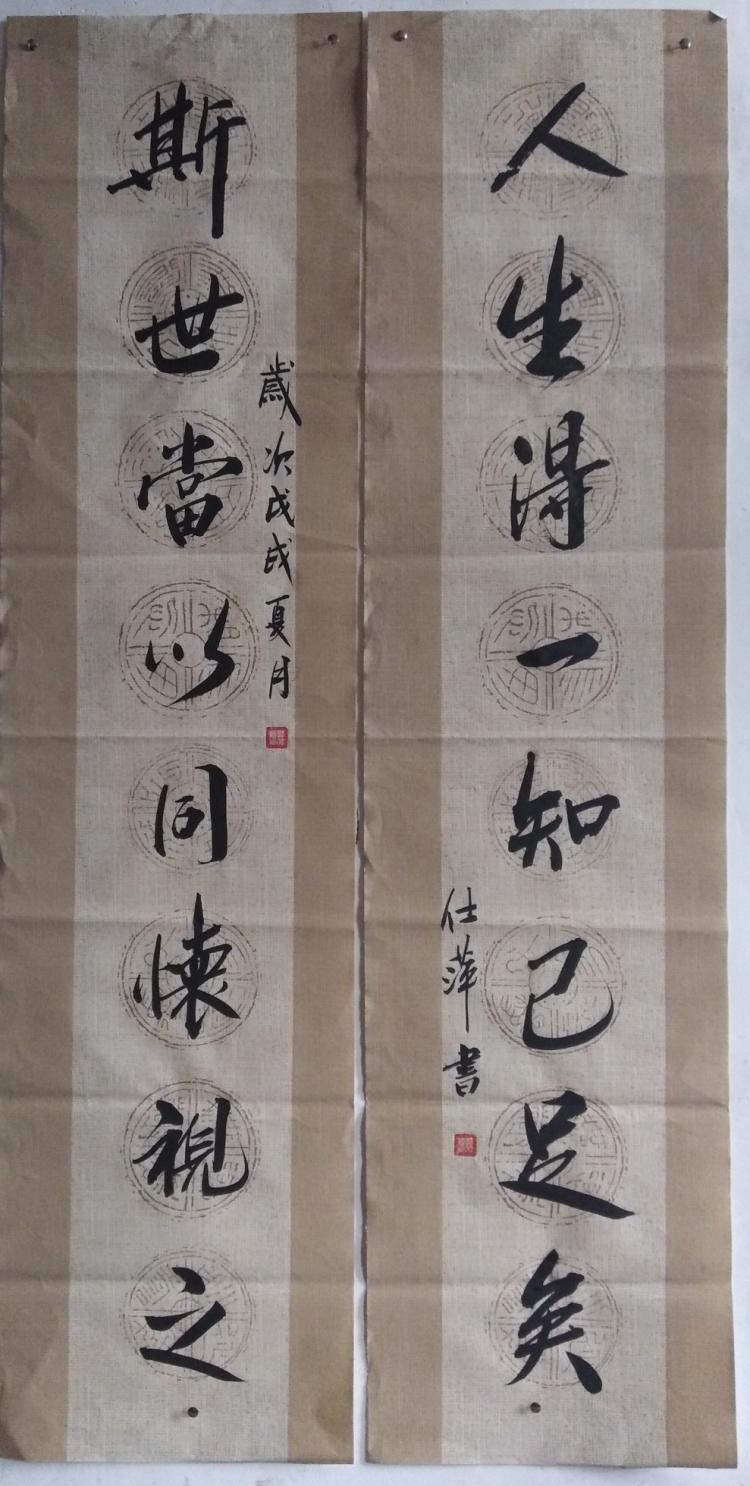 人生得一知己足矣
仕萍書
斯世當以同懷視之
歲次戊戌夏月